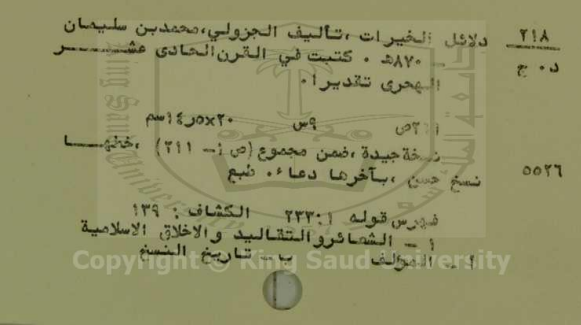 ٢١٨ دلائل الخيرات ،تأليف الجزولي،محمدبن سليمان
د٠ ج - ٨٧٠هـ ٠ كتبت في القرن الحادى عشـــــر
الهجرى تقديرا٠
٩س ٢٠×١٤٫٥سم
نسخة جيدة ،ضمن مجموع (ص ١- ٢١١) ،خطهـــا
٥٥٢٦ نسخ حسن ،بآخرها دعاء٠ طبع
فهرس قوله ٢٣٣:١ الكشاف: ١٣٩
١ - الشعائروالتقاليد والاخلاق الاسلامية
أ - المؤلف ب - تاريخ النسخ
Copyright © King Saud University
King Saud University